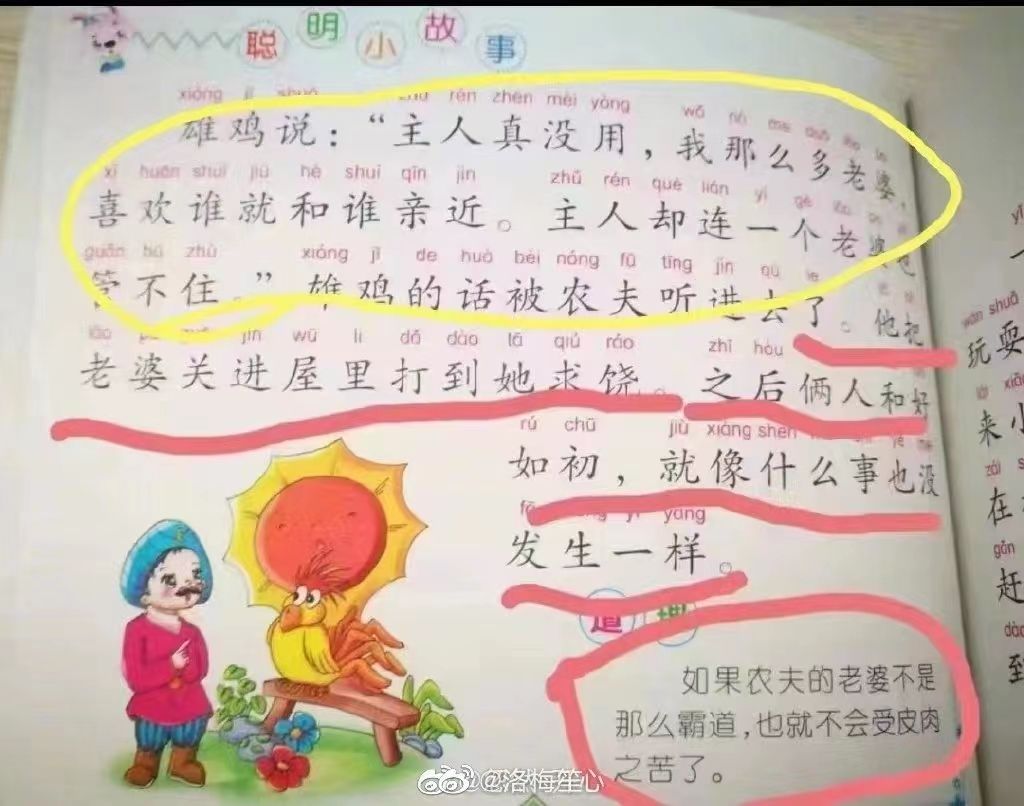 聪明小故事
xióng jī shuō zhǔ rén zhēn méi yòng
雄鸡说：“主人真没用，我那么多老婆，
xǐ huān shuí jiù hé shuí qīn jìn zhǔ rén què lián yī gè
喜欢谁就和谁亲近。主人却连一个老婆也
guǎn bú zhù xióng jī de huà bèi nóng fū tīng jìn qù le
管不住。”雄鸡的话被农夫听进去了。他把
jìn wū lǐ dǎ dào tā qiú ráo zhī hòu
老婆关进屋里打到她求饶。之后俩人和好
rú chū jiù xiàng shén
如初，就像什么事也没
yī yàng
发生一样。
道理
如果农夫的老婆不是
那么霸道，也就不会受皮肉
之苦了。
wán shuǎ
玩耍
来小
zài
在
gǎn
赶
dào
到
@洛梅笙心